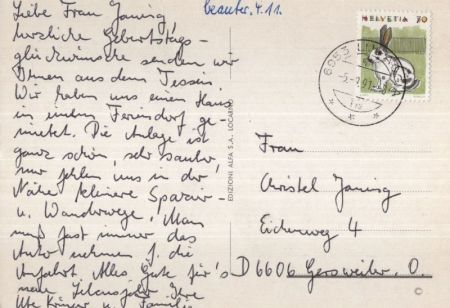 Liebe Frau Janing,
herzliche Geburtstags-
glückwünsche senden wir
Ihnen aus dem Tessin.
Wir haben uns einen Haus
in einem Feriendorf ge-
mietet. Die Anlage ist
ganz schön, sehr sauber,
nur fehlen uns in der
Nähe kleinere Spazier-
u. Wanderwege. Man
muß fast immer das
Auto nehmen f. die
Anfahrt. Alles Gute für's
neue Lebensjahr Ihre
Ute Körner u. Familie
4.11.
EDIZIONI ALFA S.A. LOCARNO
HELVETIA 70
Frau
Christel Janing
Eichenweg 4
D 6606 Gersweiler, O.